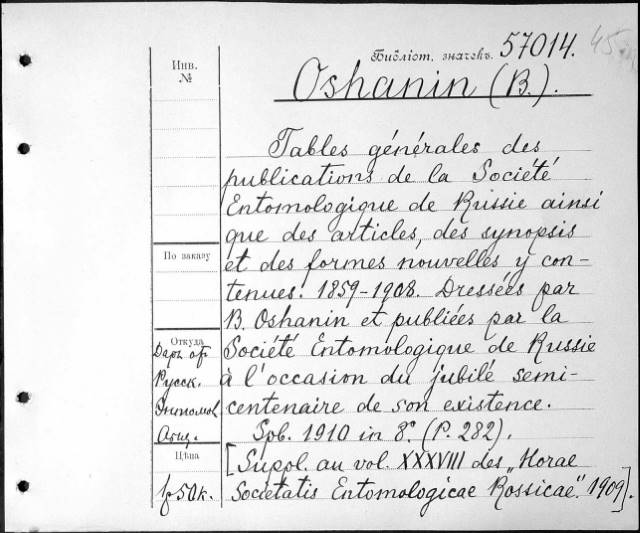 Инв.
№
Библіот. значекъ. 57014.
Oshanin (B.).
Tables générales des
publications de la Société
Entomologique de Russie ainsi
que des articles, des synopsis
et des formes nouvelles y con-
tenues. 1859-1908. Dressées par
B. Oshanin et publiées par la
Société Entomologique de Russie
à l'occasion du jubilé semi-
centenaire de son existence.
Spb. 1910 in 8°. (P. 282).
[Suppl. au vol. XXXVIII des „Horae
Societatis Entomologicae Rossicae". 1909].
По заказу
Откуда
Даръ от
Русск.
Энтомол.
Цѣна
1р50к.